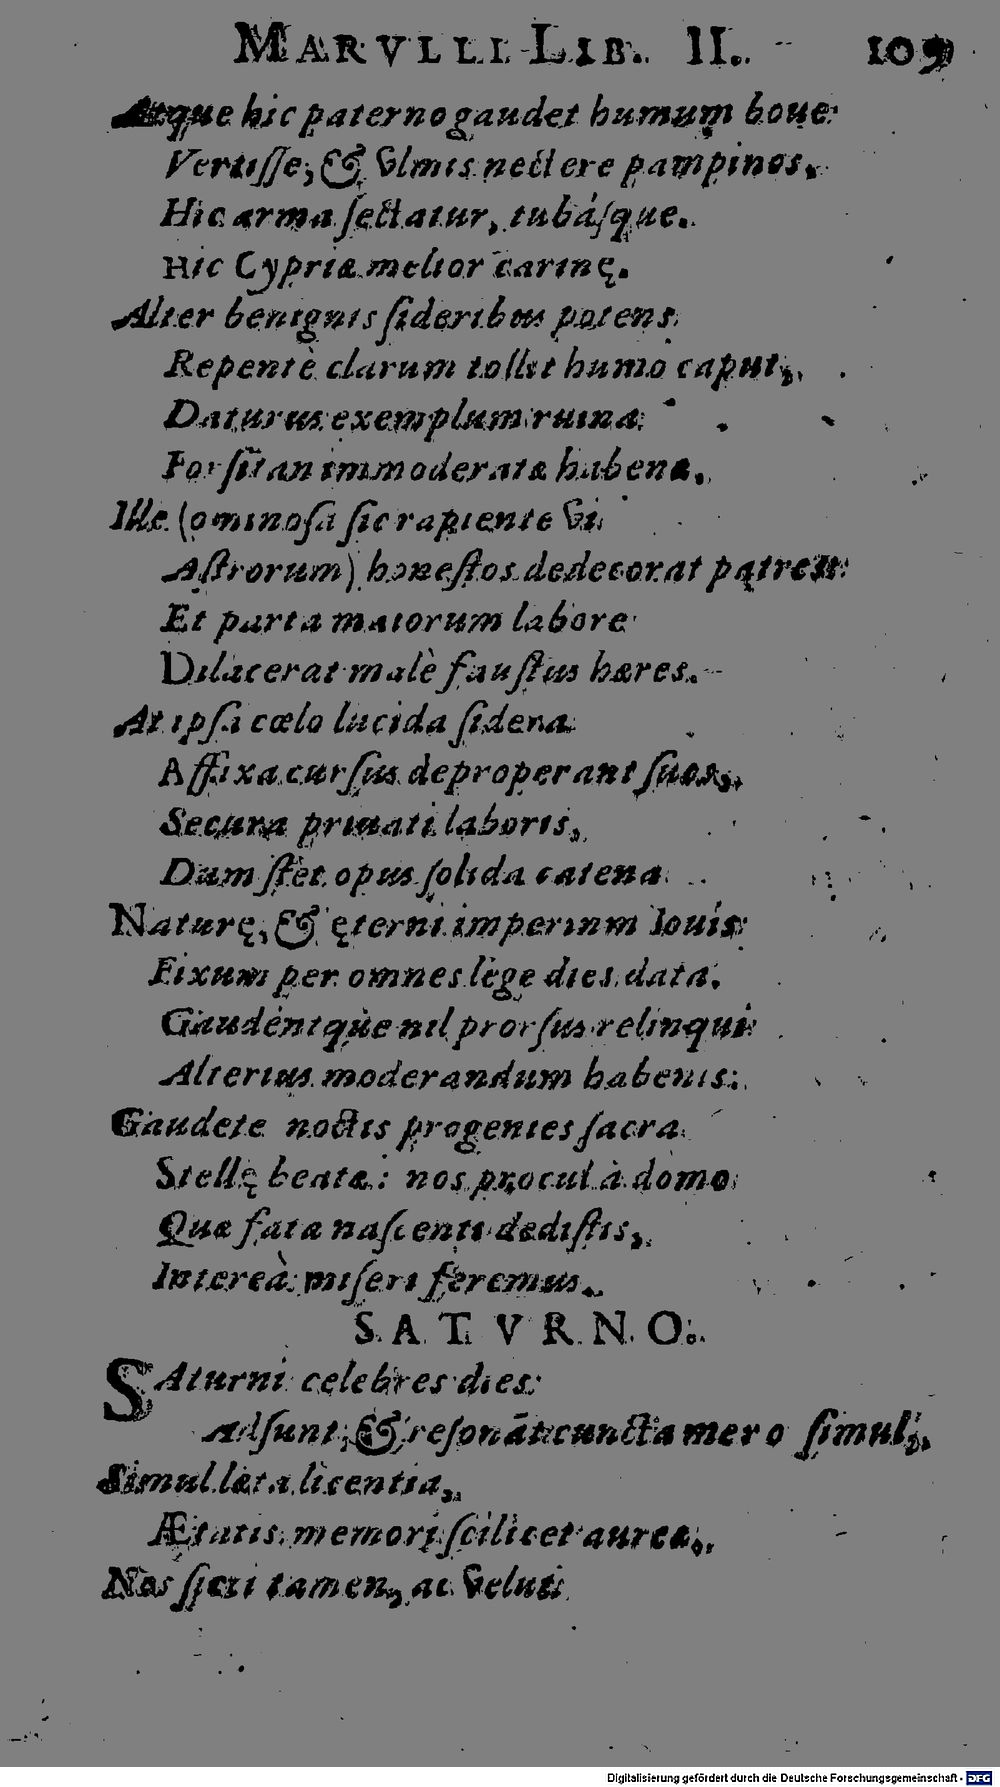 MARVLLI LIB. II. 109
Atque hic paterno gaudet humum boue
Vertisse, & vlmis nectere pampinos,
Hic arma sectatur, tubásque.
Hic Cypriæ melior carinę.
Alter benignis sideribus potens
Repentè clarum tollit humo caput,
Daturus exemplum ruina
Forsitan immoderatæ habenæ.
Ille (ominosa sic rapiente vi
Astrorum) honestos dedecorat patres:
Et parta maiorum labore
Dilacerat malè faustus hæres.
At ipsa cœlo lucida sidera
Affixa cursus deproperant suos,
Secura priuati laboris,
Dum stet opus solida catena
Naturę, & ęterni imperium Iouis
Fixum per omnes lege dies data.
Gaudéntque nil prorsus relinqui
Alterius moderandum habenis:
Gaudete noctis progenies sacra
Stellę beatæ: nos procul à domo
Quæ fata nascenti dedistis,
Intereà miseri feremus.
SATVRNO.
SAturni celebres dies
Adsunt, & resonāt cuncta mero simul,
Simul læta licentia,
Ætatis memori scilicet aureæ,
Nos sicci tamen, ac veluti
Digitalisierung gefördert durch die Deutsche Forschungsgemeinschaft - DFG